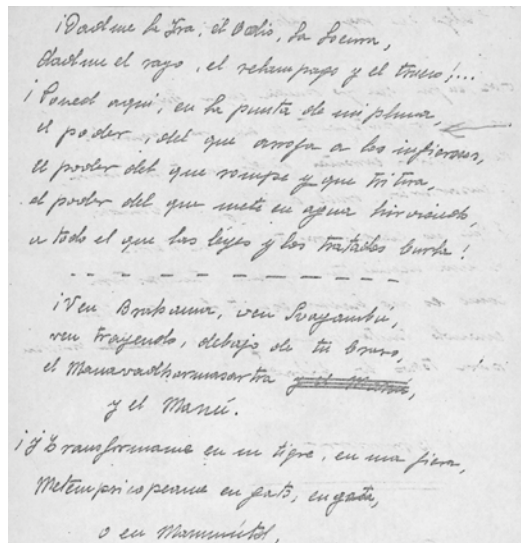 ¡Dadme la Ira, el Odio, la Locura,
dadme el rayo, el relampago y el trueno!...
¡Poned aqui, en la punta de mi pluma,
el poder, del que arroja a los infiernos,
el poder del que rompe y que tritura,
el poder del que mete en agua hirviendo,
a todo el que las leyes y los tratados burla!
- - - - - - - - - - - -
¡Ven Brahama, ven Svayambú,
ven trayendo, debajo de tu brazo,
el Manavadharmasartra y el Manú,
y el Manú.
¡Y transformame en un tigre, en una fiera,
Metempsicopeame en gato, en gata,
o en Mammúth,